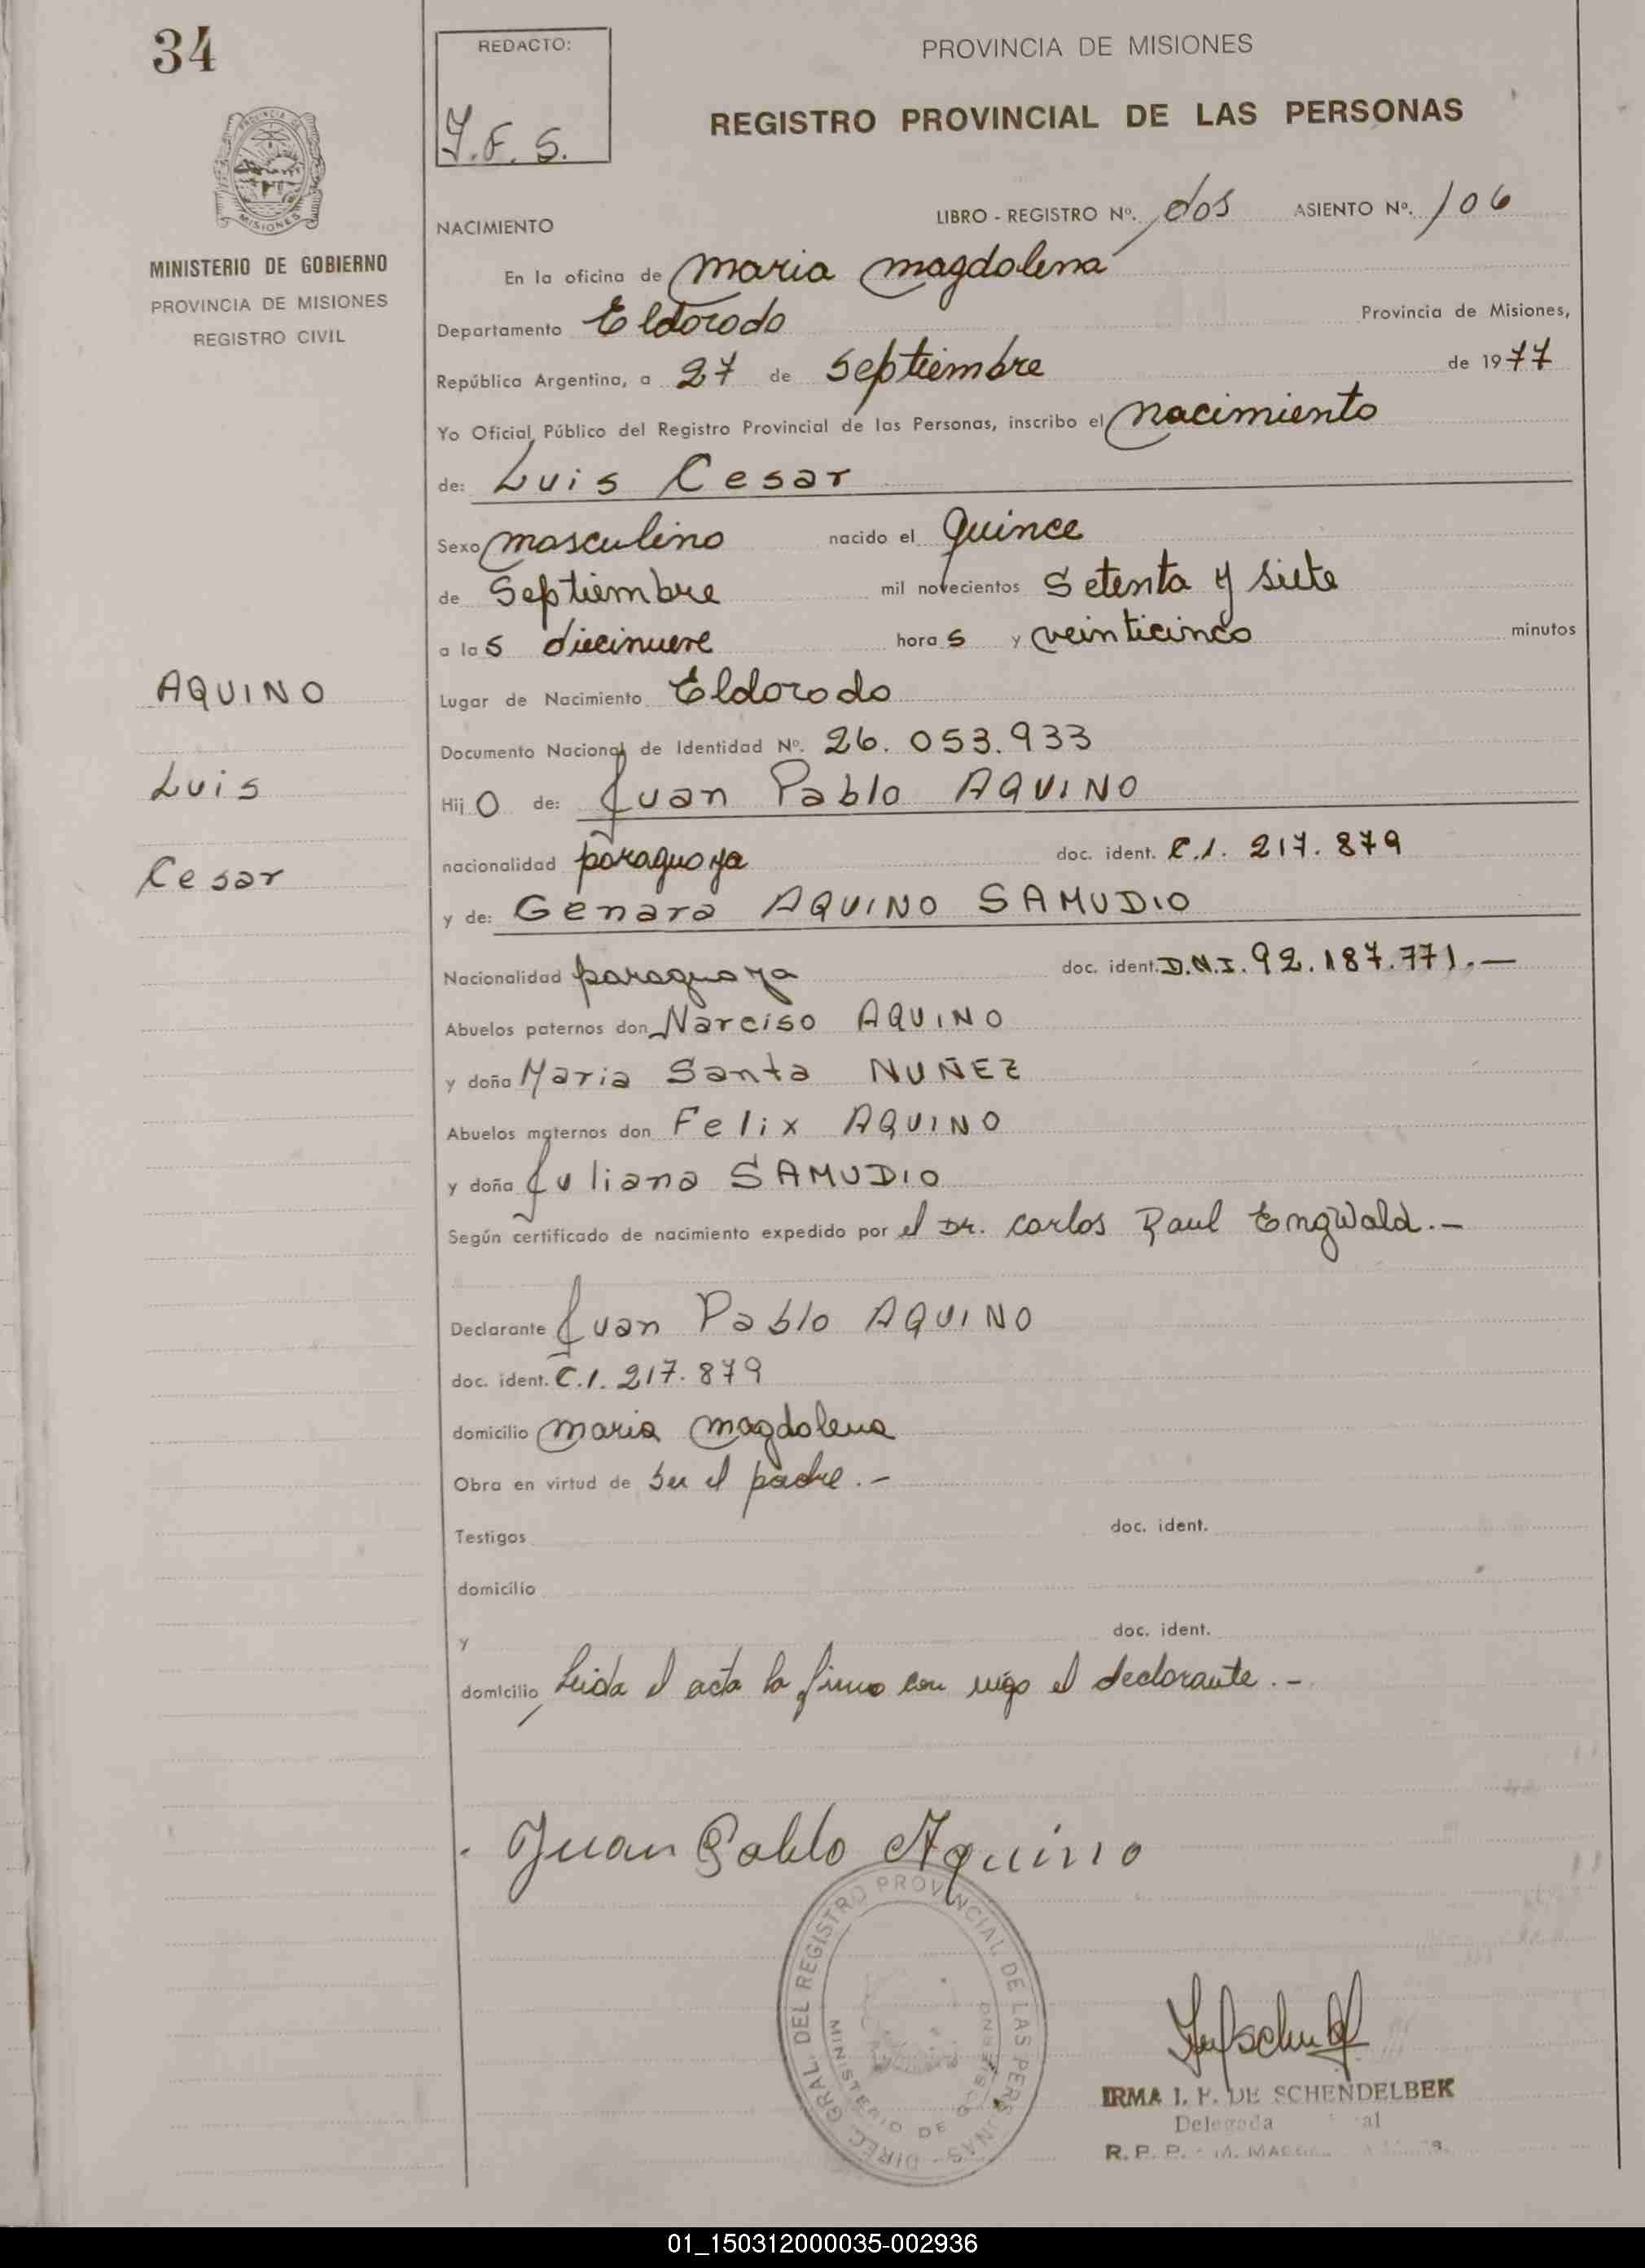 34
REDACTO:
PROVINCIA DE MISIONES
REGISTRO PROVINCIAL DE LAS PERSONAS
PROVINCIA DE
MISIONES
MINISTERIO DE GOBIERNO
PROVINCIA DE MISIONES
REGISTRO CIVIL
NACIMIENTO LIBRO - REGISTRO Nº. dos ASIENTO Nº. 106
En la oficina de Maria Magdalena
Departamento Eldorado Provincia de Misiones,
República Argentina, a 27 de Septiembre de 1977
Yo Oficial Público del Registro Provincial de las Personas, inscribo el Nacimiento
de: Luis Cesar
Sexo masculino nacido el Quince
de Septiembre mil novecientos Setenta y Siete
a las diecinueve horas y veinticinco minutos
AQUINO
Lugar de Nacimiento Eldorado
Documento Nacional de Identidad Nº. 26.053.933
Luis
Hijo de: Juan Pablo AQUINO
nacionalidad paraguaya doc. ident. C.I. 217.879
Cesar
y de: Genara AQUINO SAMUDIO
Nacionalidad paraguaya doc. ident. D.N.I. 92.187.771.-
Abuelos paternos don Narciso AQUINO
y doña Maria Santa NUÑEZ
Abuelos maternos don Felix AQUINO
y doña Juliana SAMUDIO
Según certificado de nacimiento expedido por el Dr. Carlos Raul Engwald.-
Declarante Juan Pablo AQUINO
doc. ident. C.I. 217.879
domicilio Maria Magdalena
Obra en virtud de ser el padre.-
Testigos doc. ident.
domicilio
y doc. ident.
domicilio Leida el acta la firma con migo el declarante.-
Juan Pablo Aquino
DIREC. GRAL. DEL REGISTRO PROVINCIAL DE LAS PERSONAS
MINISTERIO DE GOBIERNO
IRMA I. F. DE SCHENDELBEK
Delegada
R. P. P.
01_150312000035-002936